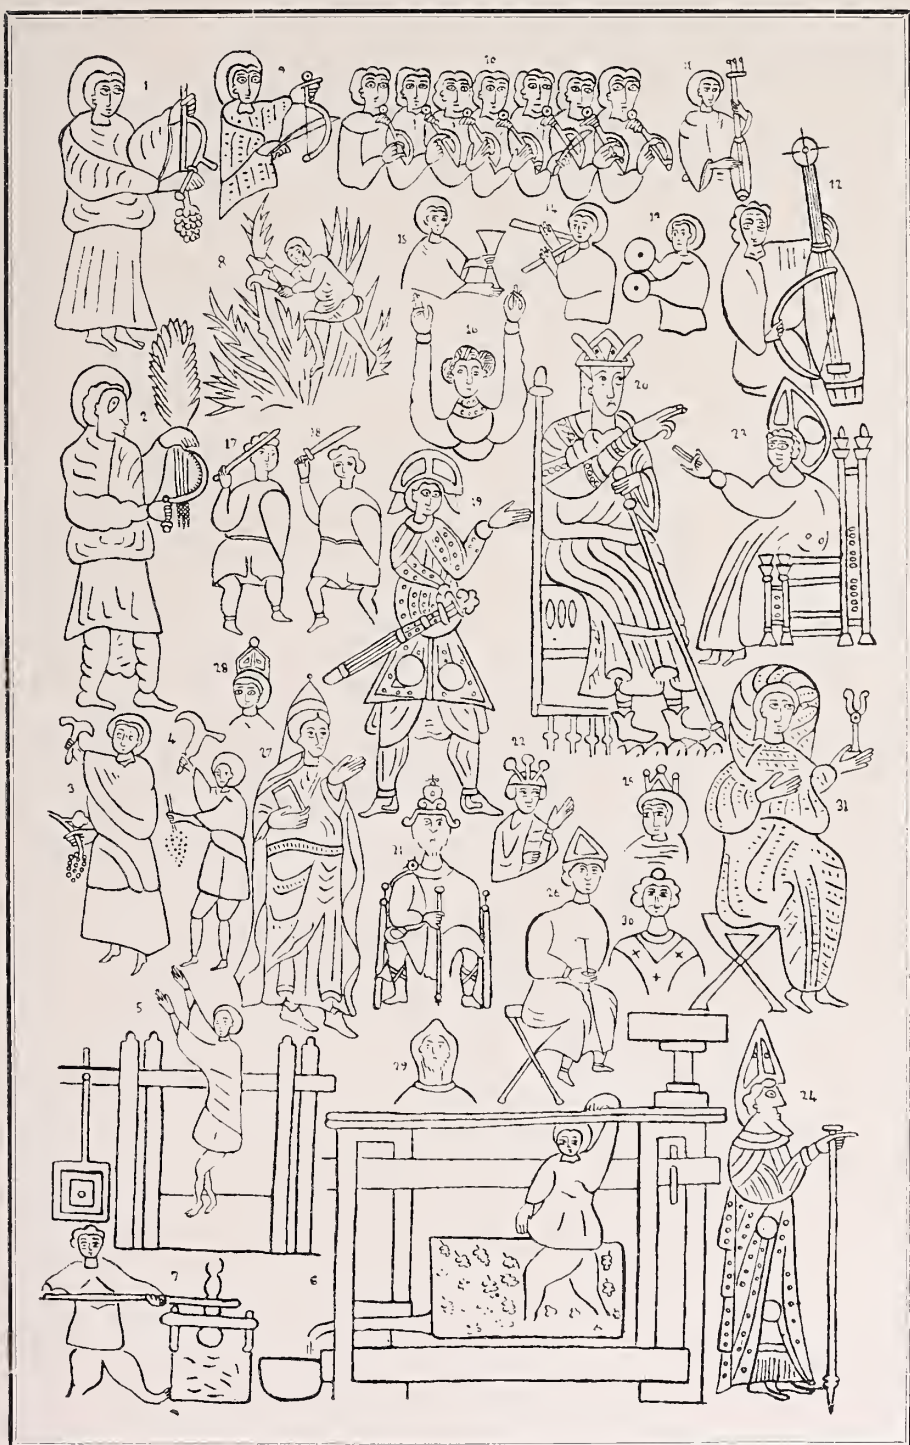 1
9
10
11
12
8
15
14
16
20
2
17
18
19
28
27
4
3
22
25
31
21
26
30
5
29
24
7
6